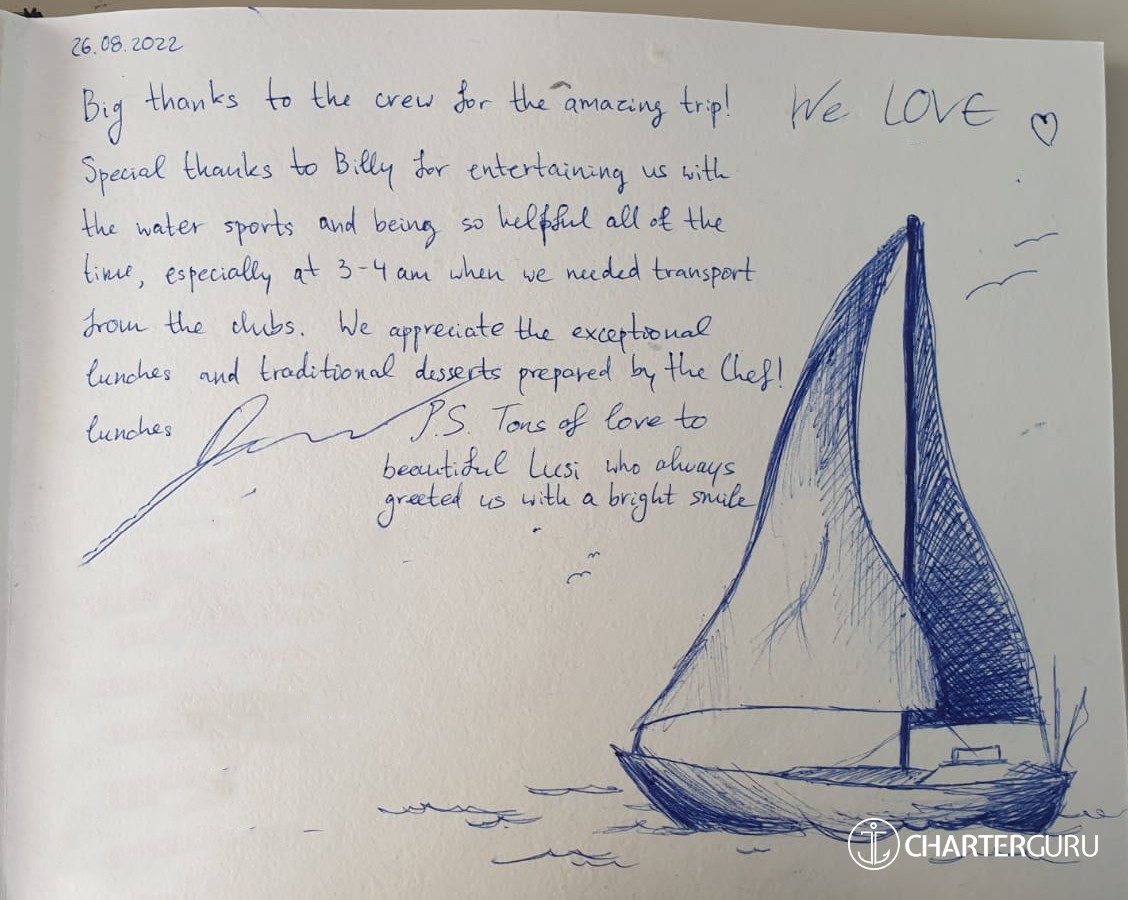 26.08.2022
Big thanks to the crew for the amazing trip!
We LOVE ♡
Special thanks to Billy for entertaining us with
the water sports and being so helpful all of the
time, especially at 3-4 am when we needed transport
from the clubs. We appreciate the exceptional
lunches and traditional desserts prepared by the Chef!
lunches
P.S. Tons of love to
beautiful Lusi who always
greeted us with a bright smile
CHARTERGURU